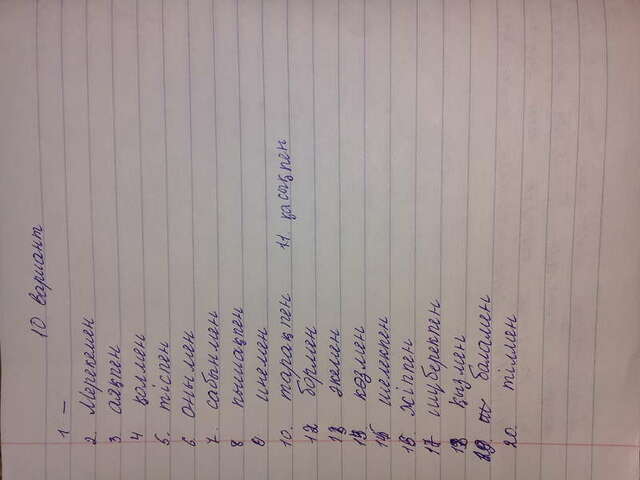 10 вариант
1 —
2. Мерекемен
3. аяқпен
4 қолмен
5. тіспен
6. онымен
7. сабынмен
8 пышақпен
9 инемен
10. тарақпен 11. қасықпен
12 бормен
13 әкемен
14. көзмен
15 шелекпен
16. жіппен
17 шүберекпен
18 қызмен
19. баламен
20. тілмен